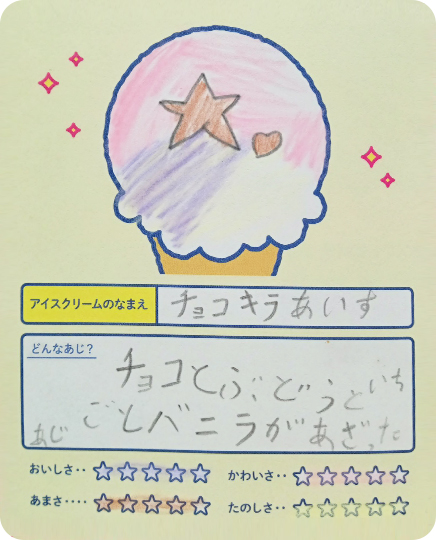 アイスクリームのなまえ
チョコキラあいす
どんなあじ?
チョコとぶどうといち
ごとバニラがあざった
あじ
おいしさ‥
かわいさ‥
あまさ‥‥
たのしさ‥